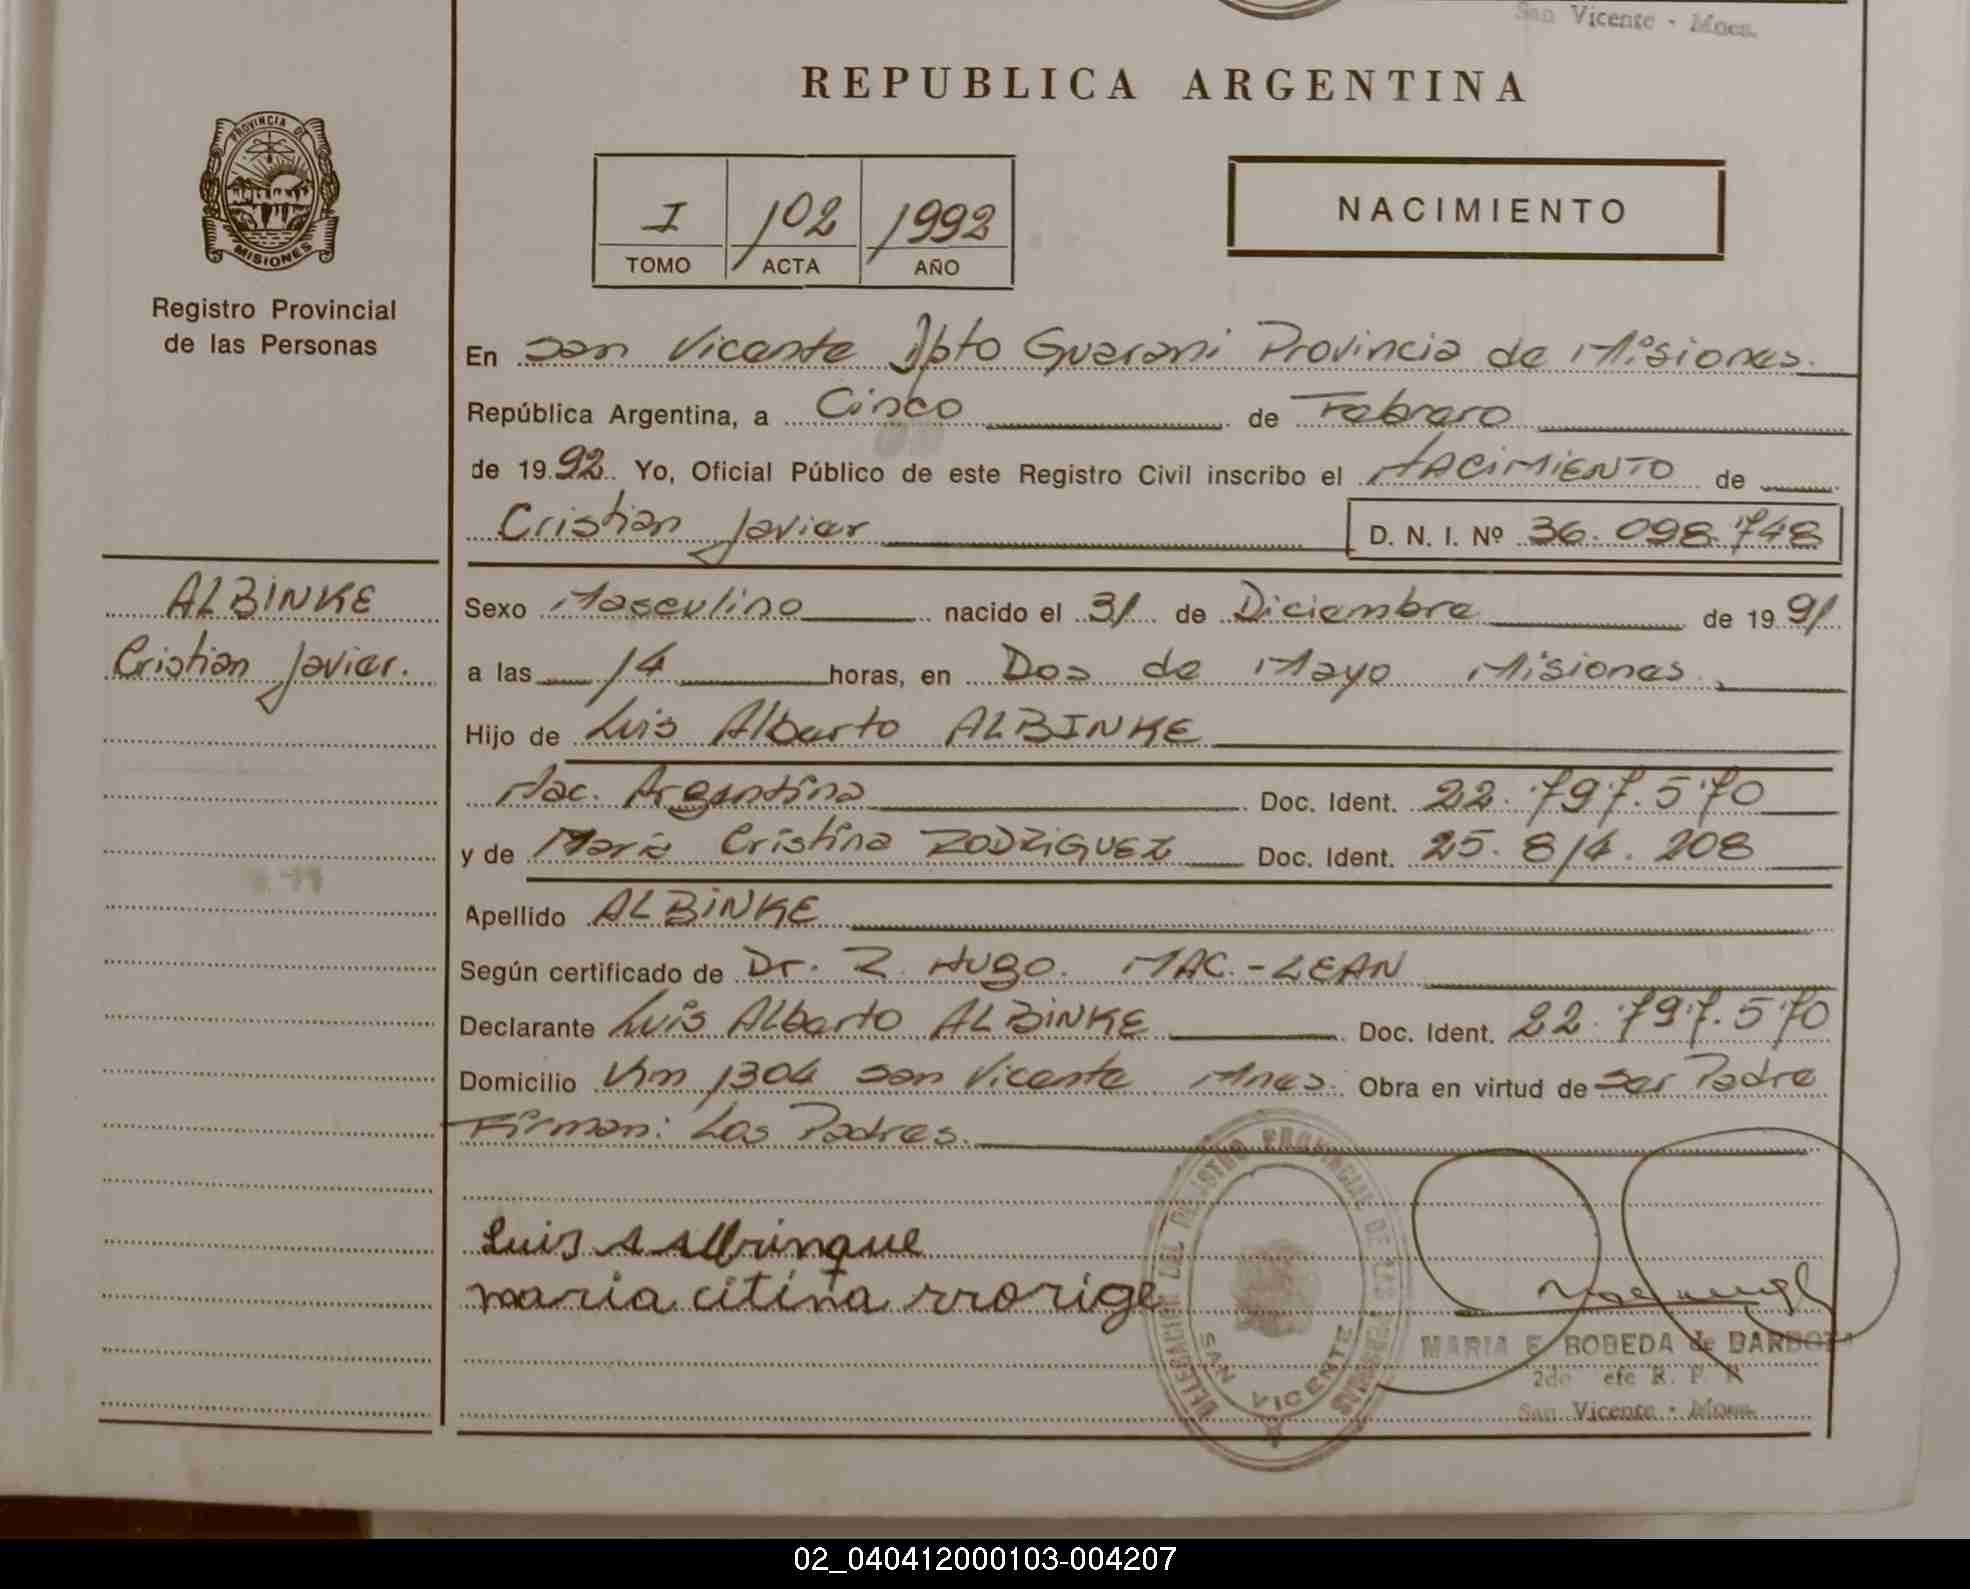 San Vicente - Mnes.
REPUBLICA ARGENTINA
PROVINCIA DE
MISIONES
Registro Provincial
de las Personas
I 102 1992
TOMO ACTA AÑO
NACIMIENTO
En San Vicente Dpto Guarani Provincia de Misiones.
República Argentina, a Cinco de Febrero
de 1992. Yo, Oficial Público de este Registro Civil inscribo el NACIMIENTO de
Cristian Javier D. N. I. Nº 36.098.748
ALBINKE
Cristian Javier.
Sexo Masculino nacido el 31 de Diciembre de 1991
a las 14 horas, en Dos de Mayo Misiones.
Hijo de Luis Alberto ALBINKE
Nac. Argentina Doc. Ident. 22.797.570
y de Maria Cristina RODRIGUEZ Doc. Ident. 25.814.208
Apellido ALBINKE
Según certificado de Dr. R. Hugo. MAC.-LEAN
Declarante Luis Alberto ALBINKE Doc. Ident. 22.797.570
Domicilio Km 1304 San Vicente Mnes. Obra en virtud de Ser Padre
Firman: Los Padres.
Luis A Albrinque
maria citina rrorige
DELEGACION DEL REGISTRO PROVINCIAL DE LAS PERSONAS
SAN VICENTE
MARIA E. BOBEDA de BARBOZA
2do efe R. P. P.
San Vicente - Mnes.
02_040412000103-004207